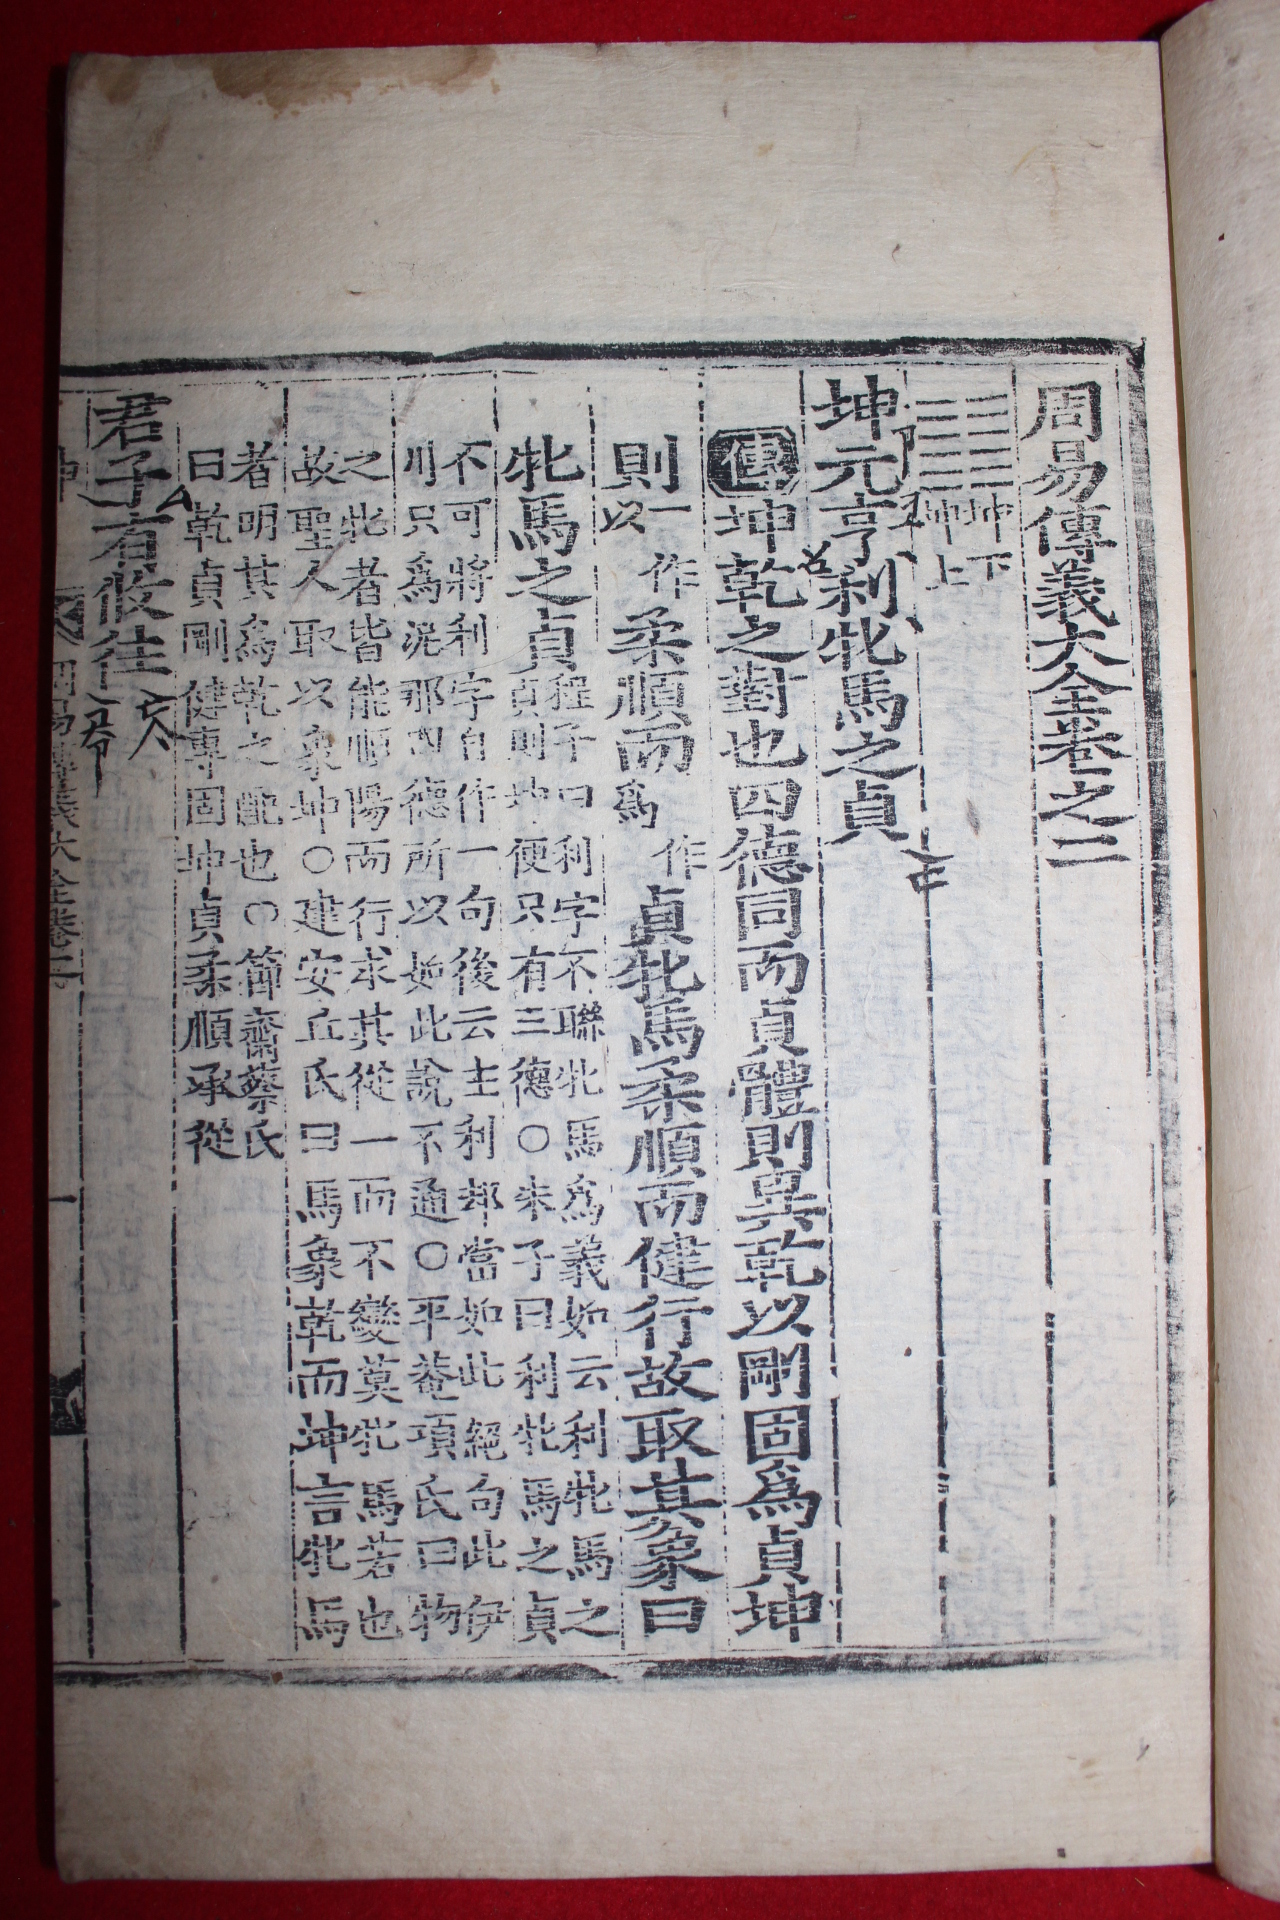 周易傳義大全卷之二
䷁坤下
坤上
坤元亨利牝馬之貞
傳坤乾之對也四德同而貞體則異乾以剛固爲貞坤
則一作以柔順而作爲貞牝馬柔順而健行故取其象曰
牝馬之貞程子曰利字不聯牝馬爲義如云利牝馬之
貞則坤便只有三德○朱子曰利牝馬之貞
不可將利字自作一句後云主利却當如此絕句此伊
川只爲泥那四德所以如此說不通○平菴項氏曰物
之牝者皆能順陽而行求其從一而不變莫牝馬若也
故聖人取以象坤○建安丘氏曰馬象乾而坤言牝馬
者明其爲乾之配也○節齋蔡氏
曰乾貞剛健專固坤貞柔順承從
君子有攸往
坤
周易傳義大全卷二
一